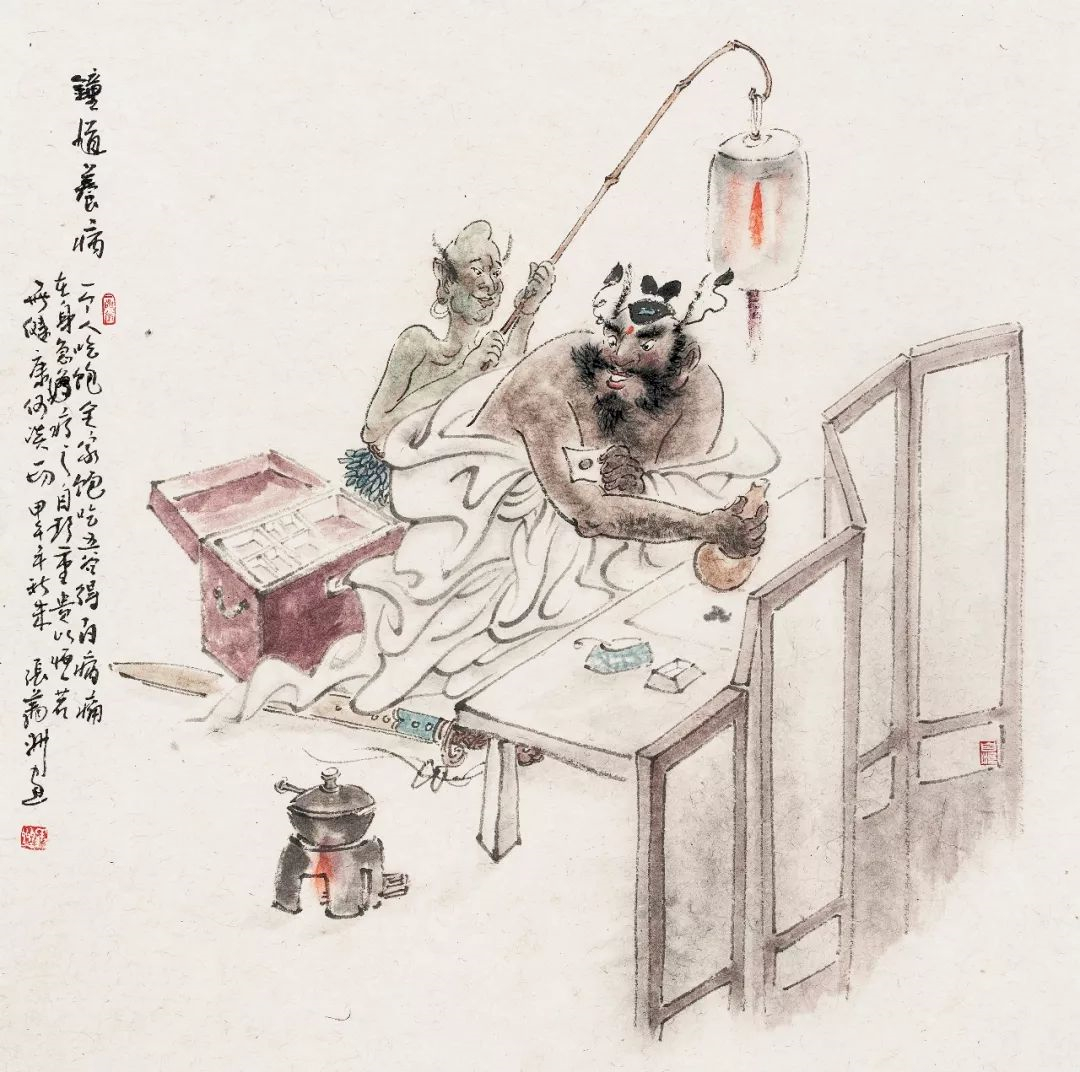 鐘馗養病
一个人吃飽全家飽吃五谷得百病痛
在身急為療之自珍重貴以恒若
無健康何談一切 甲午年秋末 張洲畫